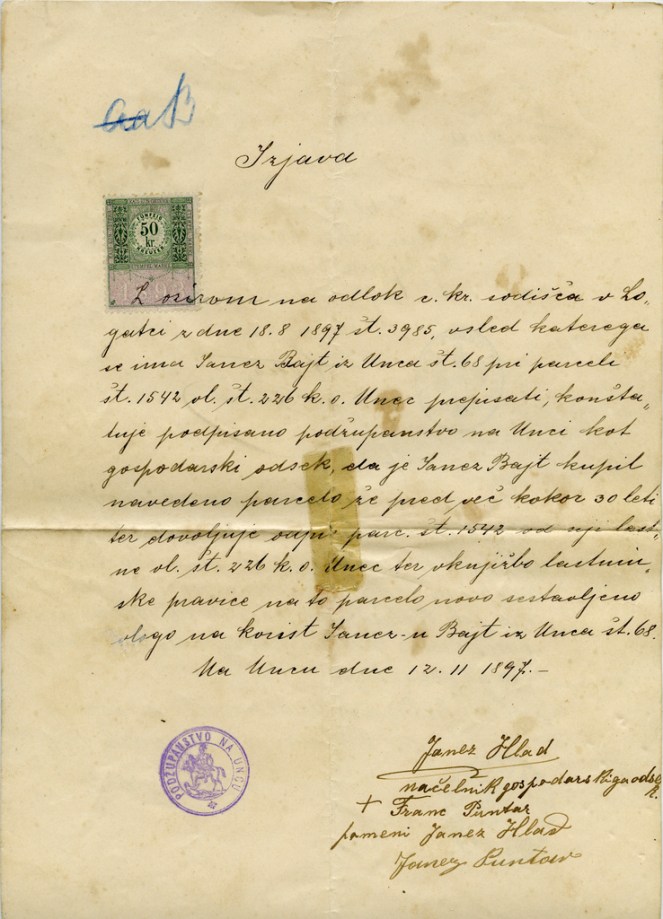 aa B
Izjava
50
kr.
1893
Z ozirom na odlok c. kr. sodišča v Lo„
gatci z dne 18.8 1897 št. 3985, vsled katerega
se ima Janez Bajt iz Unca št. 68 pri parceli
št. 1542 vl. št. 226 k. o. Unec prepisati, konšta„
tuje podpisano podžupanstvo na Unci kot
gospodarski odsek, da je Janez Bajt kupil
navedeno parcelo že pred več kokor 30 leti
ter dovoljuje odpis parc. št. 1542 od nji last„
ne vl. št. 226 k. o. Unec ter vknjižbo lastnin„
ske pravice na to parcelo novo sestavljeno
vlogo na korist Janez-u Bajt iz Unca št. 68.
Na Uncu dne 12. 11 1897.–
PODŽUPANSTVO NA UNCU
Janez Hlad
načelnik gospodarskiga odse
k.
+ Franc Puntar
pomeni Janez Hlad
Janez Puntar